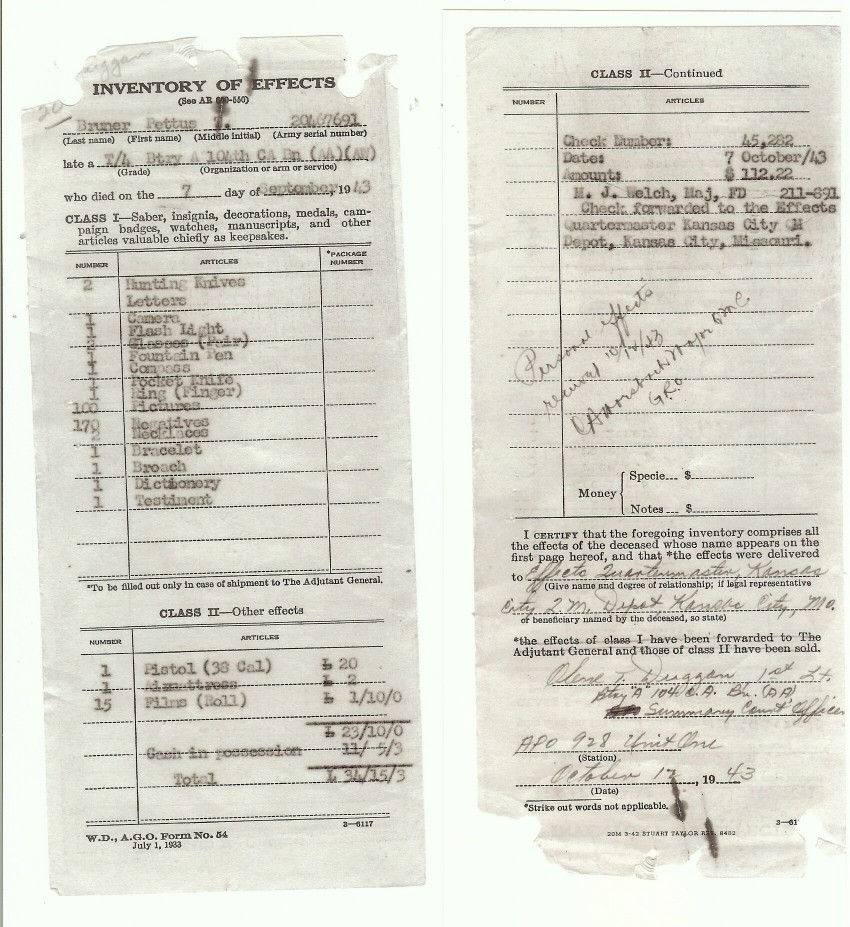 INVENTORY OF EFFECTS
(See AR 600-550)
Bruner Pettus J. 20467691
(Last name) (First name) (Middle initial) (Army serial number)
late a T/4 Btry A 104th CA Bn (AA)(AW)
(Grade) (Organization or arm or service)
who died on the 7 day of September, 1943
CLASS I—Saber, insignia, decorations, medals, cam-
paign badges, watches, manuscripts, and other
articles valuable chiefly as keepsakes.
NUMBER ARTICLES *PACKAGE NUMBER
2 Hunting Knives
Letters
1 Camera
1 Flash Light
2 Glasses (Pair)
1 Fountain Pen
1 Compass
Pocket Knife
1 Ring (Finger)
100 Pictures
179 Negatives
2 Necklaces
1 Bracelet
1 Broach
1 Dictionery
1 Testiment
*To be filled out only in case of shipment to The Adjutant General.
CLASS II—Other effects
NUMBER ARTICLES
1 Pistol (38 Cal) £ 20
1 Airmattress £ 2
15 Films (Roll) £ 1/10/0
£ 23/10/0
Cash in possession 11/ 5/3
Total £ 34/15/3
3—6117
W.D., A.G.O. Form No. 54
July 1, 1933
CLASS II—Continued
NUMBER ARTICLES
Check Number: 45,282
Date: 7 October/43
Amount: $ 112.22
M. J. Welch, Maj, FD 211-891
Check forwarded to the Effects
Quartermaster Kansas City QM
Depot, Kansas City, Missouri.
Personal effects
received 10/14/43
Major QMC
GRO
Money Specie $
Notes $
I CERTIFY that the foregoing inventory comprises all
the effects of the deceased whose name appears on the
first page hereof, and that *the effects were delivered
to Effects Quartermaster, Kansas
(Give name and degree of relationship; if legal representative
City Q.M. Depot Kansas City, Mo.
or beneficiary named by the deceased, so state)
*the effects of class I have been forwarded to The
Adjutant General and those of class II have been sold.
Olene T. Duggan 1st Lt.
Btry A 104 C.A. Bn. (AA)
Summary Court Officer
APO 928 Unit One
(Station)
October 12, 1943
(Date)
*Strike out words not applicable.
3—61
20M 3-42 STUART TAYLOR REQ. 8402